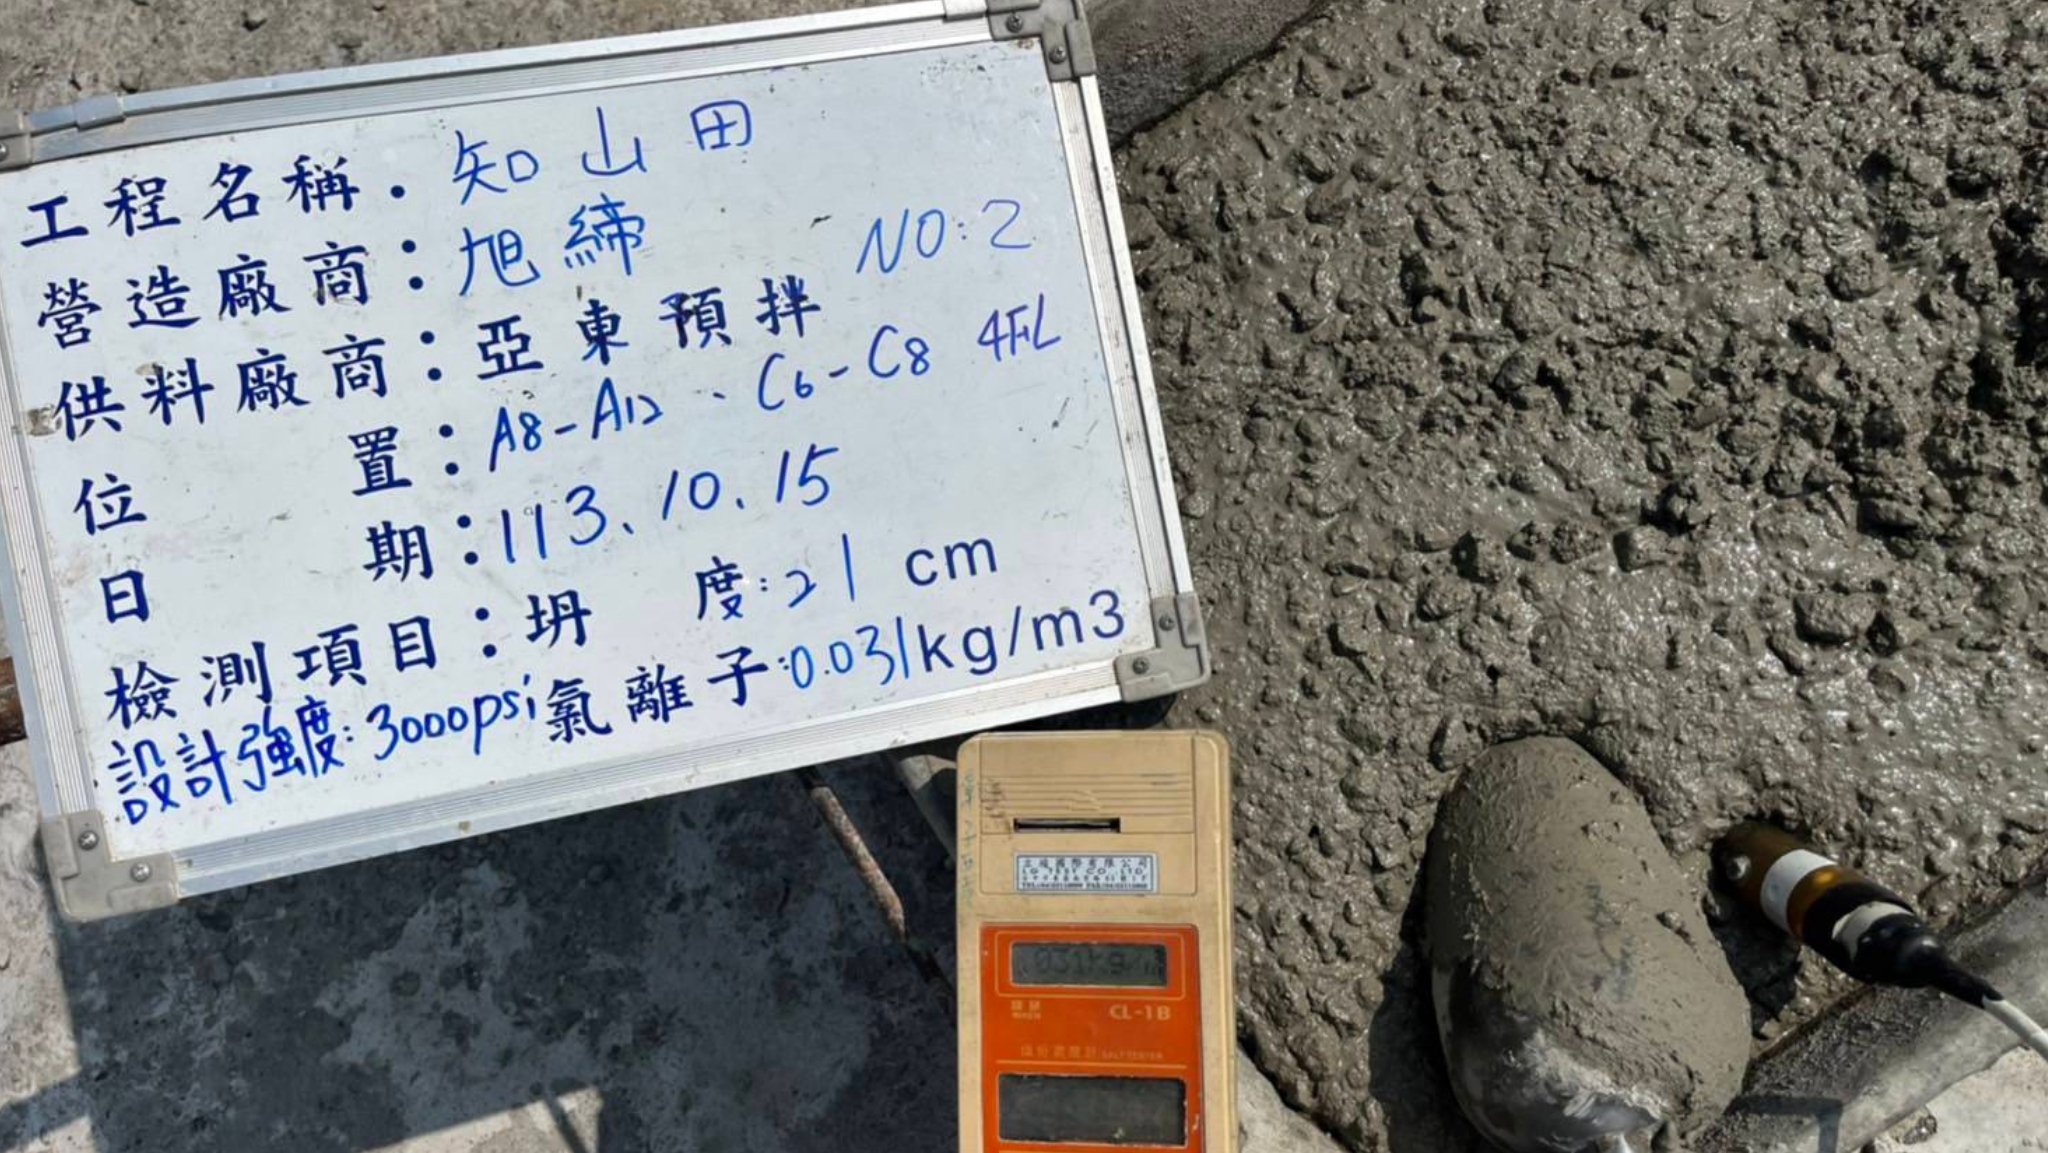 工程名稱：知山田
營造廠商：旭締
供料廠商：亞東預拌 NO:2
位置：A8-A12、C6-C8 4FL
日期：113.10.15
檢測項目：坍度：21cm
設計強度：3000psi 氯離子：0.031kg/m3
有限公司
CO., LTD.
.031kg/m
CL-1B
SALT TESTER